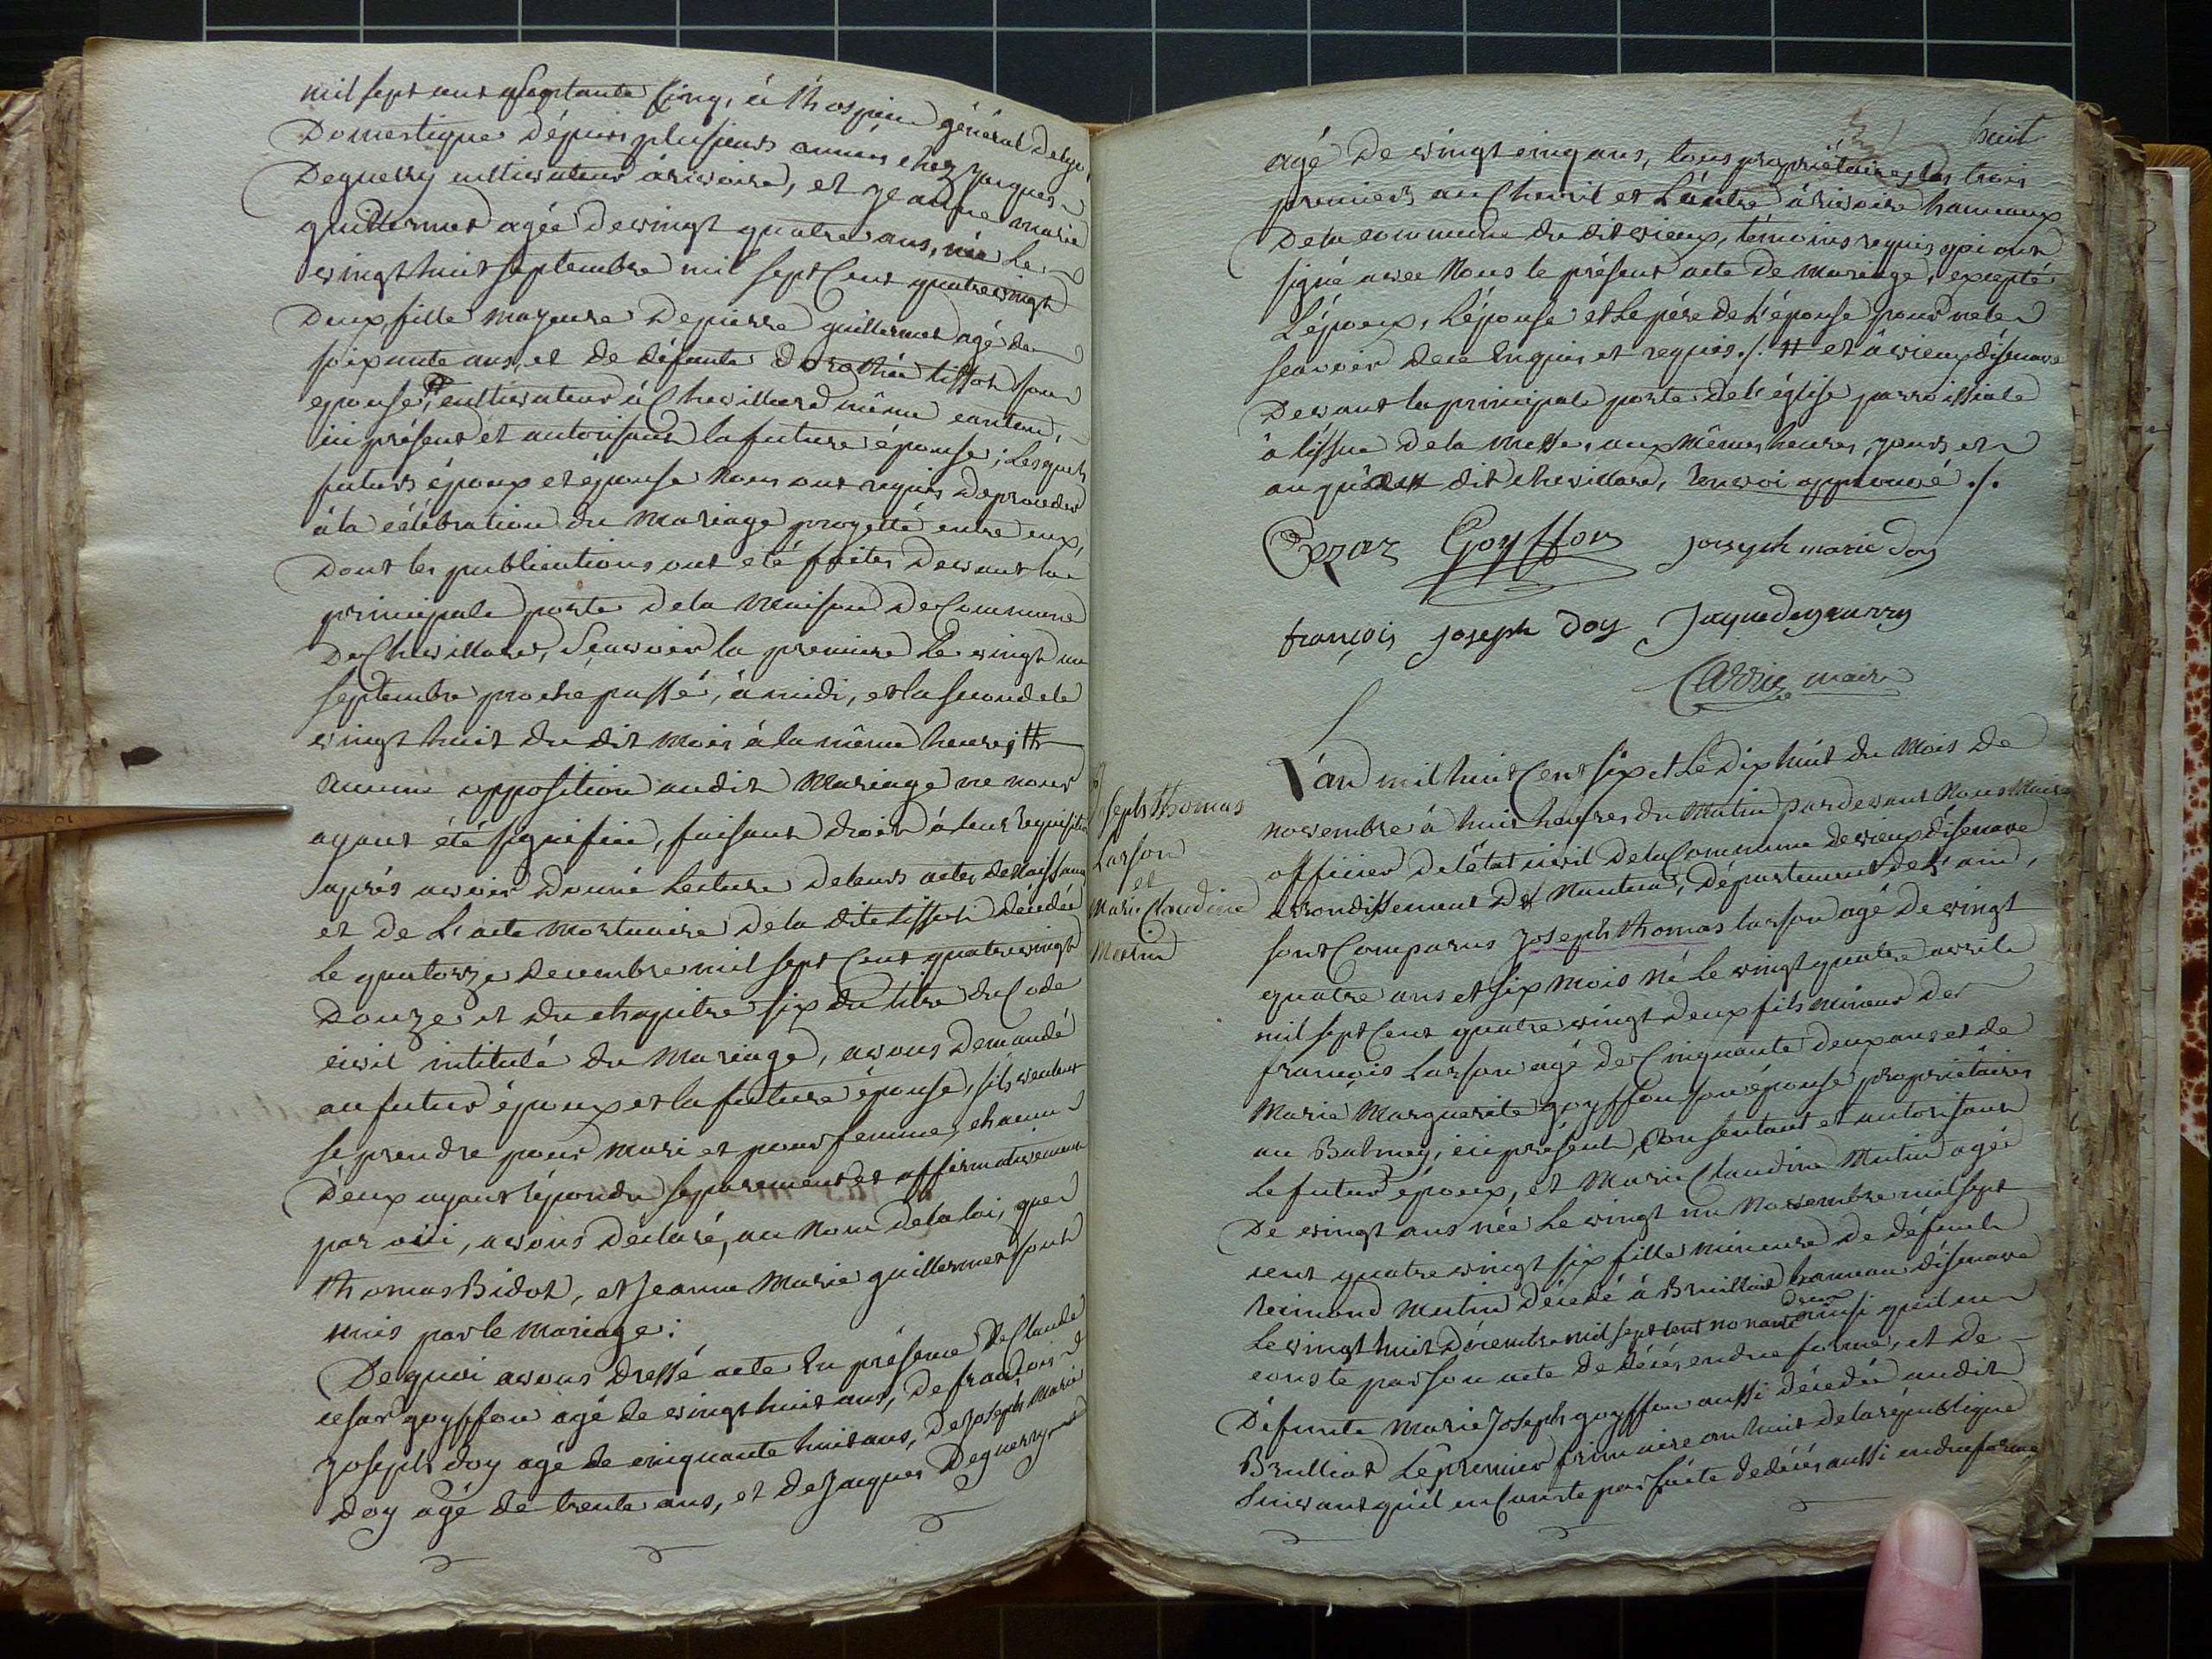 mil sept cent septante Cinq, à l'hospice général de
Domestique dépuis plusieurs années chez Jacques
Deguerry cultivateur à rivoire, et Jeanne marie
guillermet agée de vingt quatre ans, née Le
vingt huit septembre mil sept Cent quatre vingt
Deux, fille mayeure de pierre guillermet agé de
soixante ans, et de défunte Dorothée tissot son
epouse, cultivateur à Chevillard même canton,
ici présent et autorisant la future épouse; Lesquels
futurs époux et épouse Nous ont requis de proceder
à la célébration du Mariage progetté entre eux,
Dont les publications ont eté faites Devant la
principale porte de la Maison de Commune
De Chevillard, Sçavoir la premiere Le vingt un
septembre proche passé, à midi, et la seconde le
vingt huit du dit Mois à la même heure; #
aucune opposition audit Mariage ne nous
ayant été signifiée, faisant droit à leur requisition
aprés avoir donné Lecture de leurs actes de Naissance
et de L'acte Mortuaire de la dite tissot décédée
Le quatorze decembre mil sept Cent quatre vingt
Douze et du chapitre six du titre du Code
civil intitulé du Mariage, avons Demandé
au futur époux et la future épouse, s'ils veulent
se prendre pour Mari et pour femme, chacun
D'eux ayant répondu séparement et affirmativement
par oüi, avons déclaré, au Nom de la loi, que
thomas Bidot, et Jeanne Marie guillermet sont
unis par le Mariage:
De quoi avons dressé acte En présence De Claude
cesar goyffon agé de vingt huit ans, De françois
Joseph doy agé de cinquante huit ans, de Joseph Marie
doy agé de trente ans, et de Jacques Deguerry
huit
agé De vingt cinq ans, tous propriétaires, les trois
premiers au Chevril et L'autre à rivoire hameaux
De la commune du dit vieux, témoins requis qui ont
signé avec Nous le présent acte de Mariage, excepté
L'époux, L'épouse et Le pére de L'épouse pour ne le
scavoir de ce Enquis et requis ./. # et à vieux d'isenave
Devant la principale porte de l'église parroissiale
à l'issue de la Messe, aux Mêmes heures, jours et
au dit chevillard, renvoi approuvé ./.
Cezar Goyffon joseph marie doy
françois joseph doy Jaque degueurry
Carrier maire
L'an mil huit Cent six et Le Dix huit du Mois de
novembre à huit heures du Matin pardevant Nous Maire
officier de l'état civil de la Commune de vieux d'isenave
arrondissement De Nantua, Département de L'ain,
Joseph thomas
Larson
et
Marie Claudine
Mutin
sont Comparus Joseph thomas Larson agé De vingt
quatre ans et six mois né Le vingt quatre avril
mil sept Cent quatre vingt Deux fils mineur De
françois Larson agé de Cinquante deux ans et de
Marie Marguerite goyffon son épouse propriétaires
au Balmey, ici présent, Consentant et autorisant
Le futur époux, et Marie Claudine Mutin agée
De vingt ans née Le vingt un Novembre mil sept
cent quatre vingt six fille mineure de défunt
reimond Mutin décédé à Bruillat hameau d'isenave
Le vingt huit Décembre mil sept cent nonante deux ainsi qu'il en
conste par son acte de décés en due forme, et de
Défunte Marie Joseph goyffon aussi décédée audit
Brulliat Le premier frimaire an huit de la république
suivant qu'il en Conste par l'acte de décés aussi en due forme